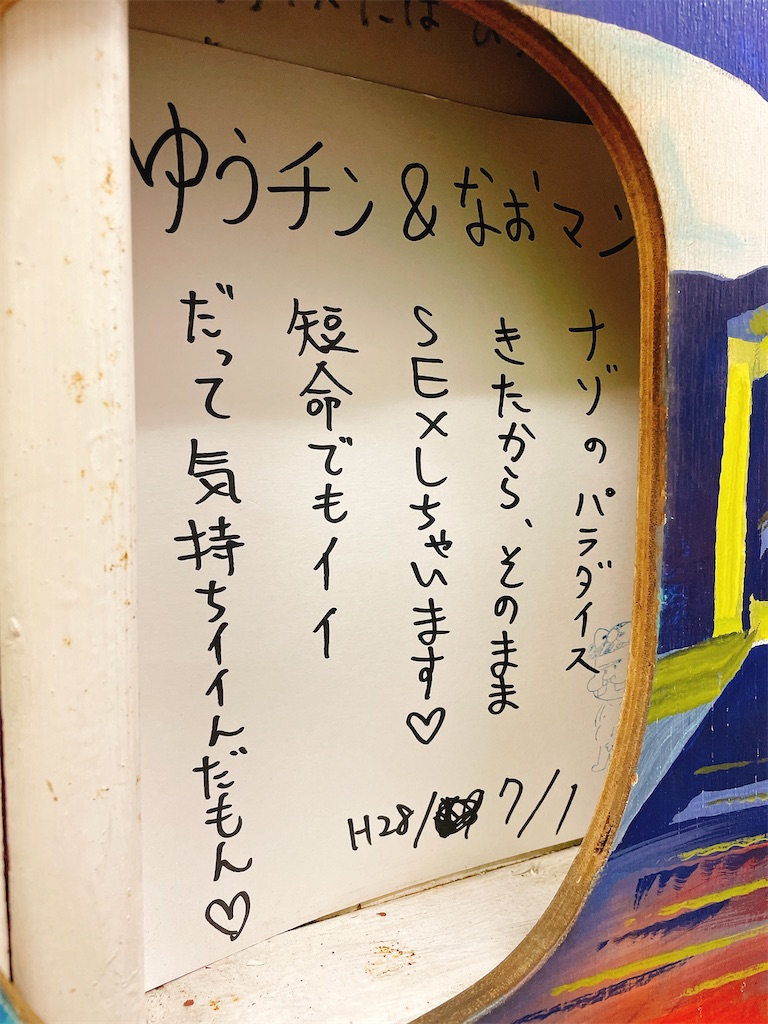 ゆうチン&なおマン
ナゾのパラダイス
きたから、そのまま
SEXしちゃいます♡
短命でもイイ
だって気持ちイイんだもん♡
H28/ 7/1